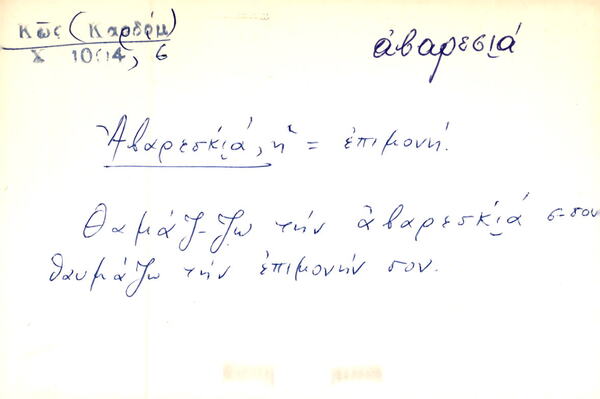 Κῶς (Καρδάμ)
Χ 1014, 6
ἀβαρεσι̯ά
Ἀβαρεσκι̯ά, ἡ = ἐπιμονή.
Θαμάζ-ζω τὴν ἀβαρεσκι̯ά σ-σου
θαυμάζω τὴν ἐπιμονήν σου.